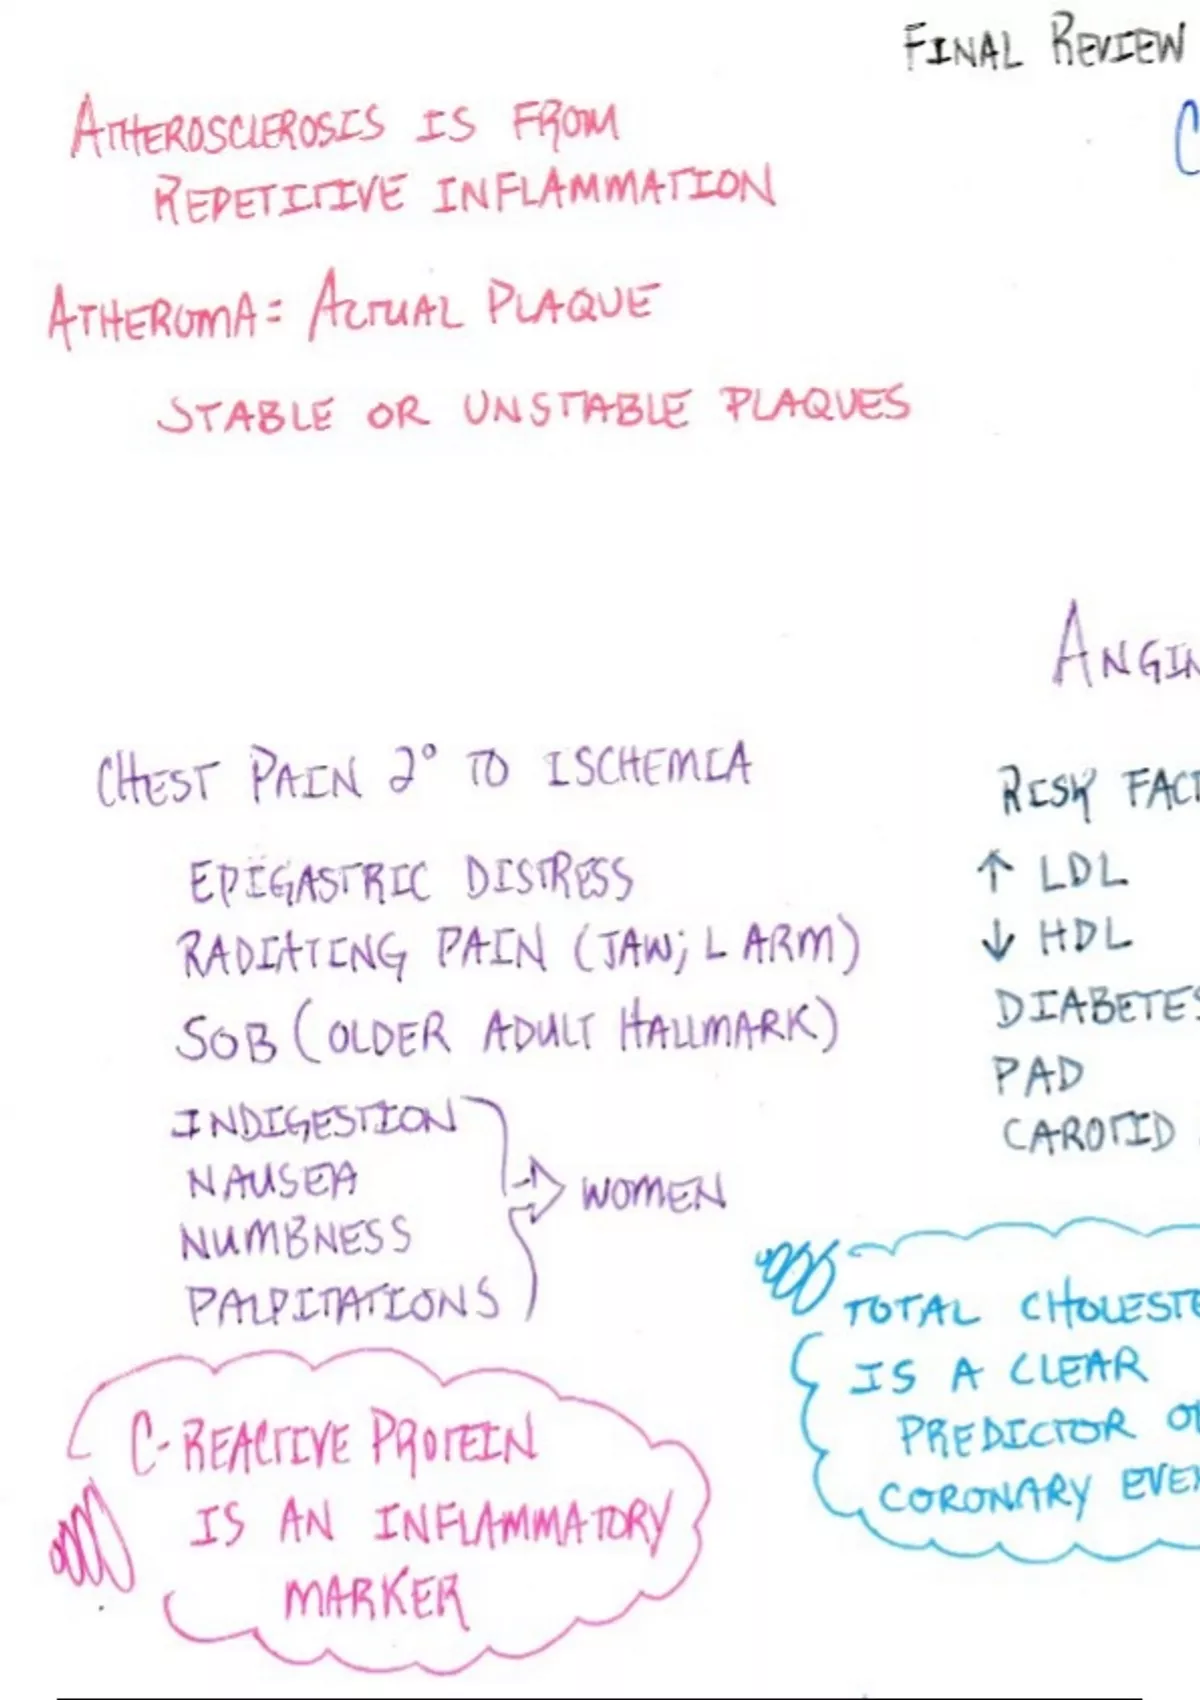 FINAL REVIEW
C
ATHEROSCLEROSIS IS FROM
REPETITIVE INFLAMMATION
ATHEROMA = ACTUAL PLAQUE
STABLE OR UNSTABLE PLAQUES
ANGIN
CHEST PAIN 2° TO ISCHEMIA
EPIGASTRIC DISTRESS
RADIATING PAIN (JAW; L ARM)
SOB (OLDER ADULT HALLMARK)
INDIGESTION
NAUSEA
NUMBNESS
PALPITATIONS
WOMEN
RISK FACT
↑ LDL
↓ HDL
DIABETES
PAD
CAROTID
TOTAL CHOLESTE
IS A CLEAR
PREDICTOR O
CORONARY EVE
C-REACTIVE PROTEIN
IS AN INFLAMMATORY
MARKER